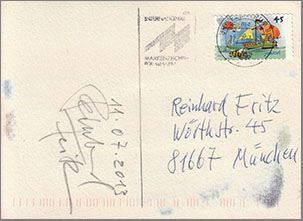 45
11.07.2013
Reinhard
Fritz
Reinhard Fritz
Wörthstr. 45
81667 München